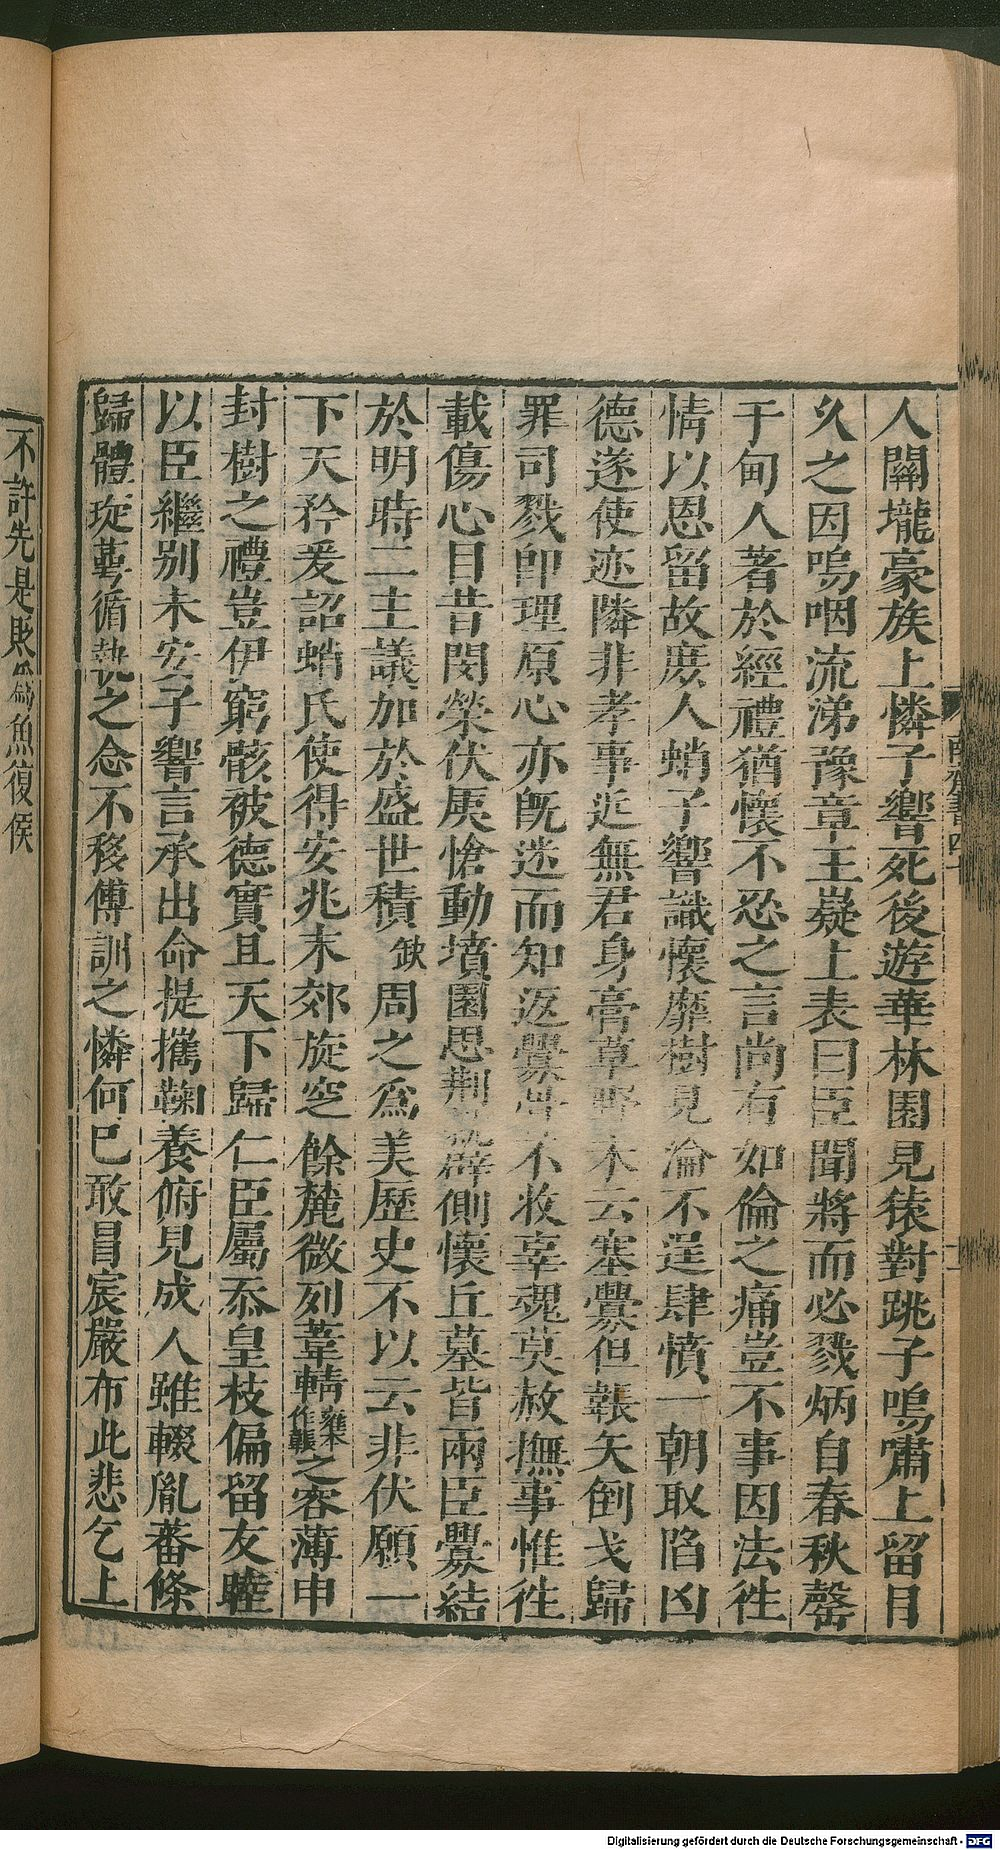 人關壠豪族上憐子響死後遊華林園見猿對跳子鳴嘯上留目
久之因嗚咽流涕豫章王嶷上表曰臣聞將而必戮炳自春秋罄
于甸人著於經禮猶懷不忍之言尚有如倫之痛豈不事因法徃
情以恩留故庶人蛸子響識懷靡樹見淪不逞肆憤一朝取陷凶
德遂使迹隣非孝事近無君身膏草野未云塞釁但韔矢倒戈歸
罪司戮卽理原心亦旣迷而知返釁骨不收辜魂莫赦撫事惟徃
載傷心目昔閔榮伏戾愴動墳園思荆就辟側懷丘墓皆兩臣釁結
於明時二主議加於盛世積缺周之爲美歷史不以云非伏願一
下天矜爰詔蛸氏使得安兆末郊旋窆餘麓微列葦䡖雍本作韔之容薄申
封樹之禮豈伊窮骸被德實且天下歸仁臣屬忝皇枝偏留友睦
以臣繼別未安子響言承出命提攜鞠養俯見成人雖輟胤蕃條
歸體琁萼循執之念不移傅訓之憐何已敢冒宸嚴布此悲乞上
不許先是貶爲魚復侯
南齊書四十
十一
Digitalisierung gefördert durch die Deutsche Forschungsgemeinschaft - DFG